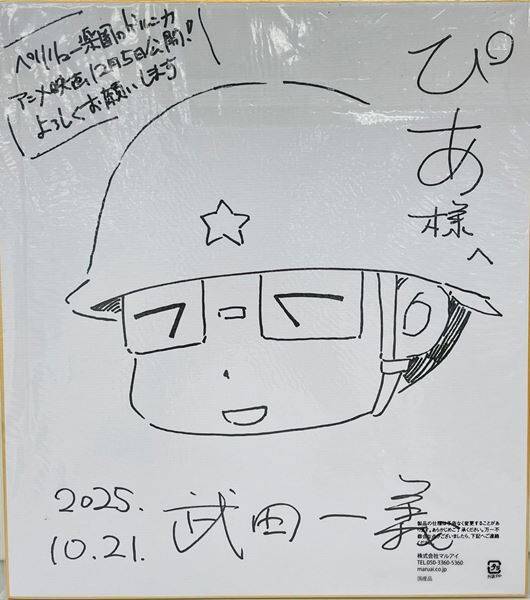 ペリリュー 楽園のゲルニカ
アニメ映画、12月5日公開!
よろしくお願いします
ぴあ様へ
2025.
10.21.
武田一義
製品の仕様は予告なく変更することがあ
ります。あらかじめご了承ください。万一不
都合な点がございましたら、下記へご連絡
ください。
株式会社マルアイ
TEL.050-3360-5360
maruai.co.jp
国産品